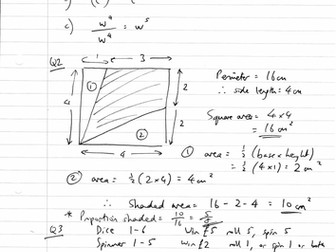 c) w⁹/w⁴ = w⁵
Q2
1 3
① 
4 2
2
②
4
Perimeter = 16cm
∴ side length = 4cm
Square area = 4x4
= 16cm²
① area = ½ (base x height)
= ½ (4x1) = 2cm²
② area = ½ (2x4) = 4cm²
∴ Shaded area = 16 - 2 - 4 = 10cm²
* Proportion shaded = 10/16 = 5/8
Q3 Dice 1-6 win £5 roll 5, spin 5
Spinner 1-5 win £2 roll 1, or spin 1 or both